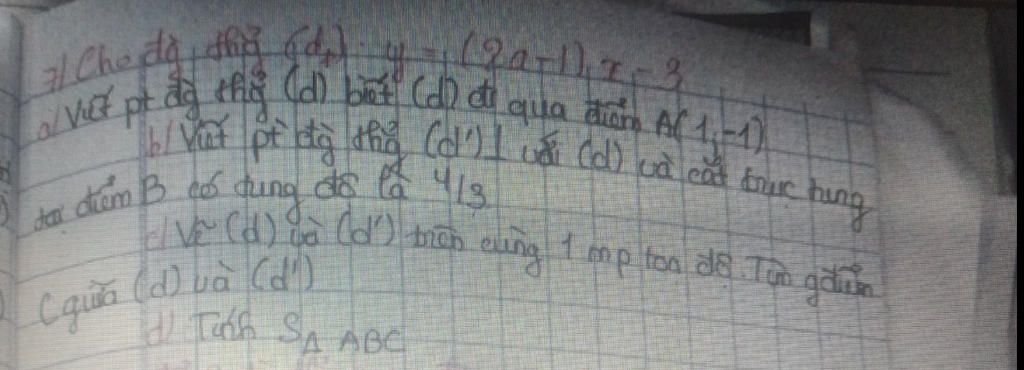 7/ Cho đg thg (d): y = (2a-1).x - 3
a) Viết pt đg thg (d) biết (d) đi qua điểm A(1,-1)
b) Viết pt đg thg (d') ⊥ với (d) và cắt trục tung
tại điểm B có tung độ là 4/3
c) Vẽ (d) và (d') trên cùng 1 mp toạ độ. Tìm gđiểm
C giữa (d) và (d')
d) Tính S△ ABC